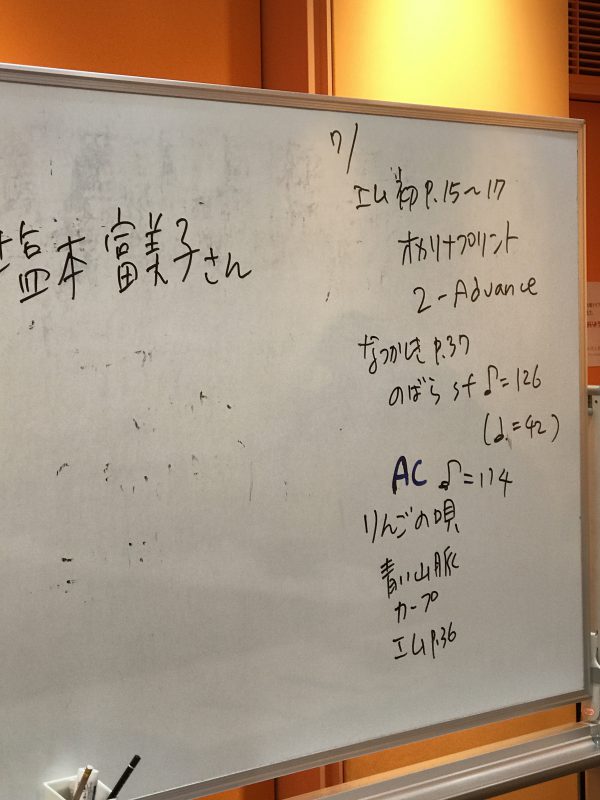 塩本 富美子さん
7/
エム 初 P.15〜17
オカリナプリント
2-Advance
なつかしき P.37
のばら sf ♪=126
(♩.=42)
AC ♪=114
りんごの唄
青い山脈
カープ
エム P.36